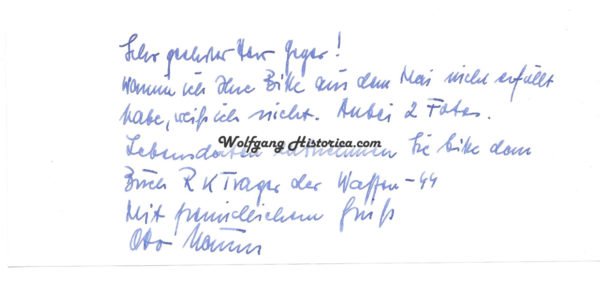 Sehr geehrter Herr Geger!
Warum ich Ihre Bitte aus dem Mai nicht erfüllt
habe, weiß ich nicht. Anbei 2 Fotos.
Wolfgang Historica.com
Lebensdaten entnehmen Sie bitte dem
Buch RK Träger der Waffen-44
Mit freundlichem Gruß
Otto Kumm